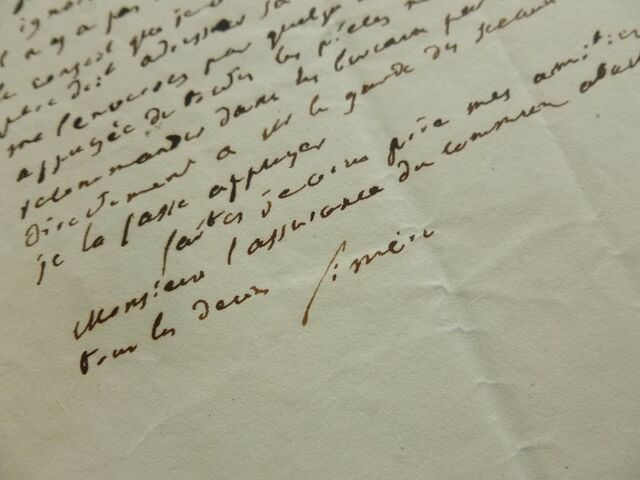 ignor
il n y a pas
le conseil que je
doit adresser sa
me l'envoyés par quelqu
appuyée de toutes les pièces
recommander dans les bureaux par
directement a Mr le garde des sceaux
je la fasse appuyer
faites je vous prie mes amitiés
Monsieur l'assurance du commun
tous les deux Siméon